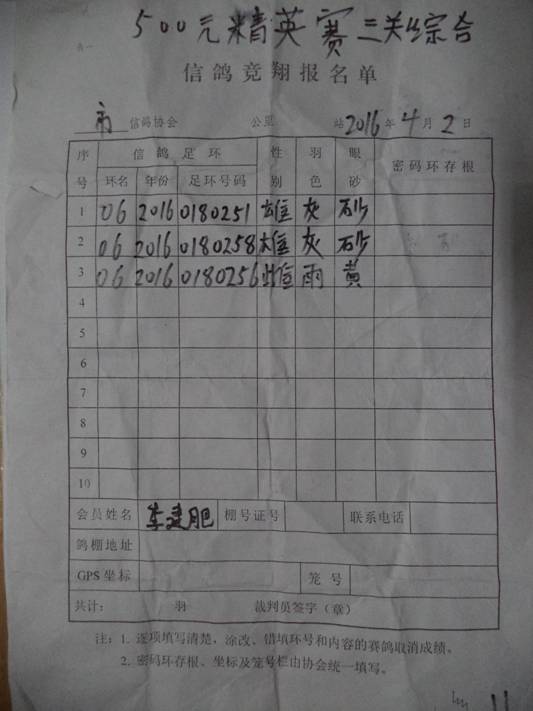 500元精英赛三关综合
信鸽竞翔报名单
市 信鸽协会 公里 站 2016 年 4 月 2 日
序号 信鸽足环 性别 羽色 眼砂 密码环存根
环名 年份 足环号码
1 06 2016 0180251 雄 灰 砂
2 06 2016 0180258 雄 灰 砂
3 06 2016 0180256 雌 雨 黄
4
5
6
7
8
9
10
会员姓名 李建肥 棚号证号 联系电话
鸽棚地址
GPS坐标 笼号
共计： 羽 裁判员签字（章）
注：1. 逐项填写清楚，涂改、错填环号和内容的赛鸽取消成绩。
2. 密码环存根、坐标及笼号栏由协会统一填写。